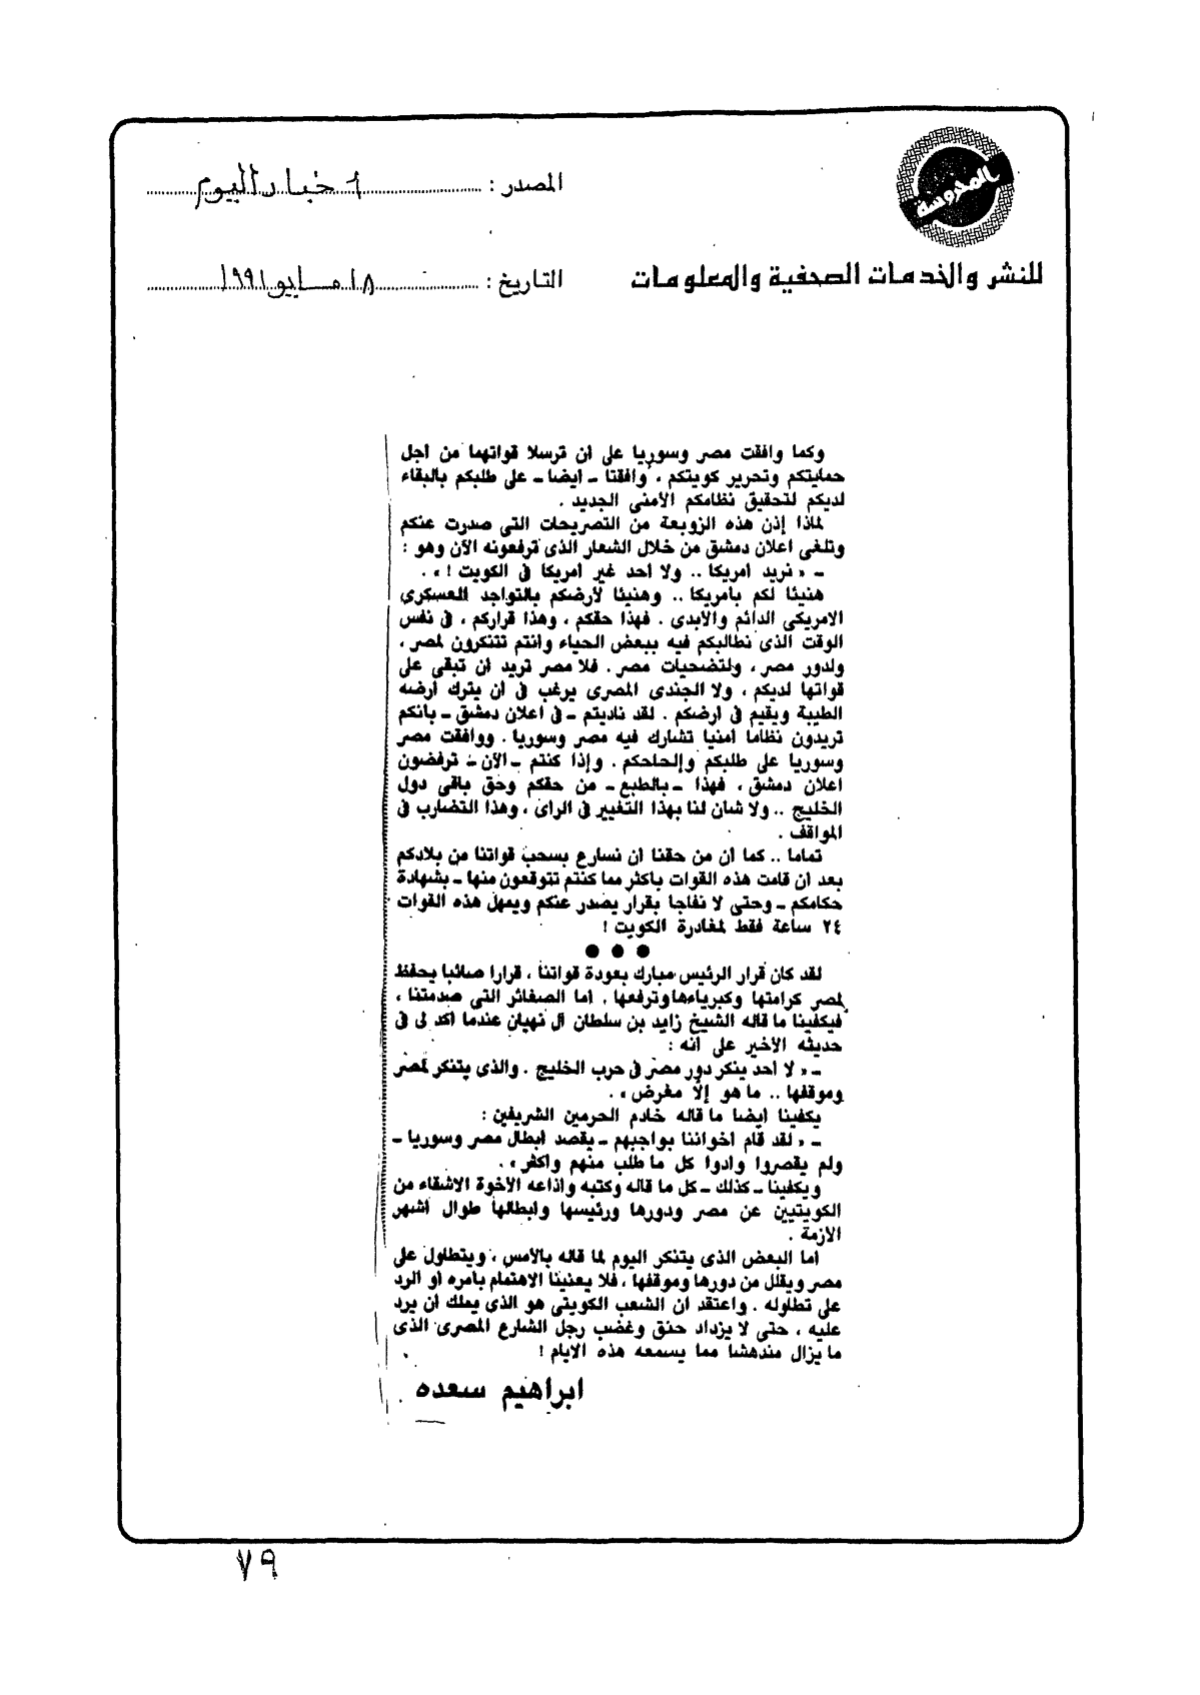 المحروسة
المصدر : أخبار اليوم
للنشر والخدمات الصحفية والمعلومات
التاريخ : ١٨ مايو ١٩٩١
وكما وافقت مصر وسوريا على ان ترسلا قواتهما من اجل
حمايتكم وتحرير كويتكم ، وافقتا ـ ايضا ـ على طلبكم بالبقاء
لديكم لتحقيق نظامكم الأمنى الجديد .
لماذا إذن هذه الزوبعة من التصريحات التى صدرت عنكم
وتلغى اعلان دمشق من خلال الشعار الذى ترفعونه الآن وهو :
ـ « نريد امريكا .. ولا احد غير امريكا فى الكويت ! » .
هنيئا لكم بامريكا .. وهنيئا لأرضكم بالتواجد العسكرى
الامريكى الدائم والأبدى . فهذا حقكم ، وهذا قراركم ، فى نفس
الوقت الذى نطالبكم فيه ببعض الحياء وانتم تتنكرون لمصر ،
ولدور مصر ، ولتضحيات مصر . فلا مصر تريد ان تبقى على
قواتها لديكم ، ولا الجندى المصرى يرغب فى ان يترك ارضه
الطيبة ويقيم فى ارضكم . لقد ناديتم ـ فى اعلان دمشق ـ بانكم
تريدون نظاما امنيا تشارك فيه مصر وسوريا . ووافقت مصر
وسوريا على طلبكم وإلحاحكم . وإذا كنتم ـ الآن ـ ترفضون
اعلان دمشق ، فهذا ـ بالطبع ـ من حقكم وحق باقى دول
الخليج .. ولا شان لنا بهذا التغيير فى الراى ، وهذا التضارب فى
المواقف .
تماما .. كما ان من حقنا ان نسارع بسحب قواتنا من بلادكم
بعد ان قامت هذه القوات باكثر مما كنتم تتوقعون منها ـ بشهادة
حكامكم ـ وحتى لا نفاجا بقرار يصدر عنكم ويمهل هذه القوات
٢٤ ساعة فقط لمغادرة الكويت !
● ● ●
لقد كان قرار الرئيس مبارك بعودة قواتنا ، قرارا صائبا يحفظ
لمصر كرامتها وكبرياءها وترفعها . اما الصغائر التى صدمتنا ،
فيكفينا ما قاله الشيخ زايد بن سلطان آل نهيان عندما أكد لى فى
حديثه الأخير على انه :
ـ « لا احد ينكر دور مصر فى حرب الخليج . والذى يتنكر لمصر
وموقفها .. ما هو إلا مغرض » .
يكفينا ايضا ما قاله خادم الحرمين الشريفين :
ـ « لقد قام اخواننا بواجبهم ـ يقصد ابطال مصر وسوريا ـ
ولم يقصروا وادوا كل ما طلب منهم واكثر » .
ويكفينا ـ كذلك ـ كل ما قاله وكتبه واذاعه الأخوة الاشقاء من
الكويتيين عن مصر ودورها ورئيسها وابطالها طوال اشهر
الأزمة .
اما البعض الذى يتنكر اليوم لما قاله بالأمس ، ويتطاول على
مصر ويقلل من دورها وموقفها ، فلا يعنينا الاهتمام بامره او الرد
على تطاوله . واعتقد ان الشعب الكويتى هو الذى يملك ان يرد
عليه ، حتى لا يزداد حنق وغضب رجل الشارع المصرى الذى
ما يزال مندهشا مما يسمعه هذه الايام !
ابراهيم سعده
٧٩